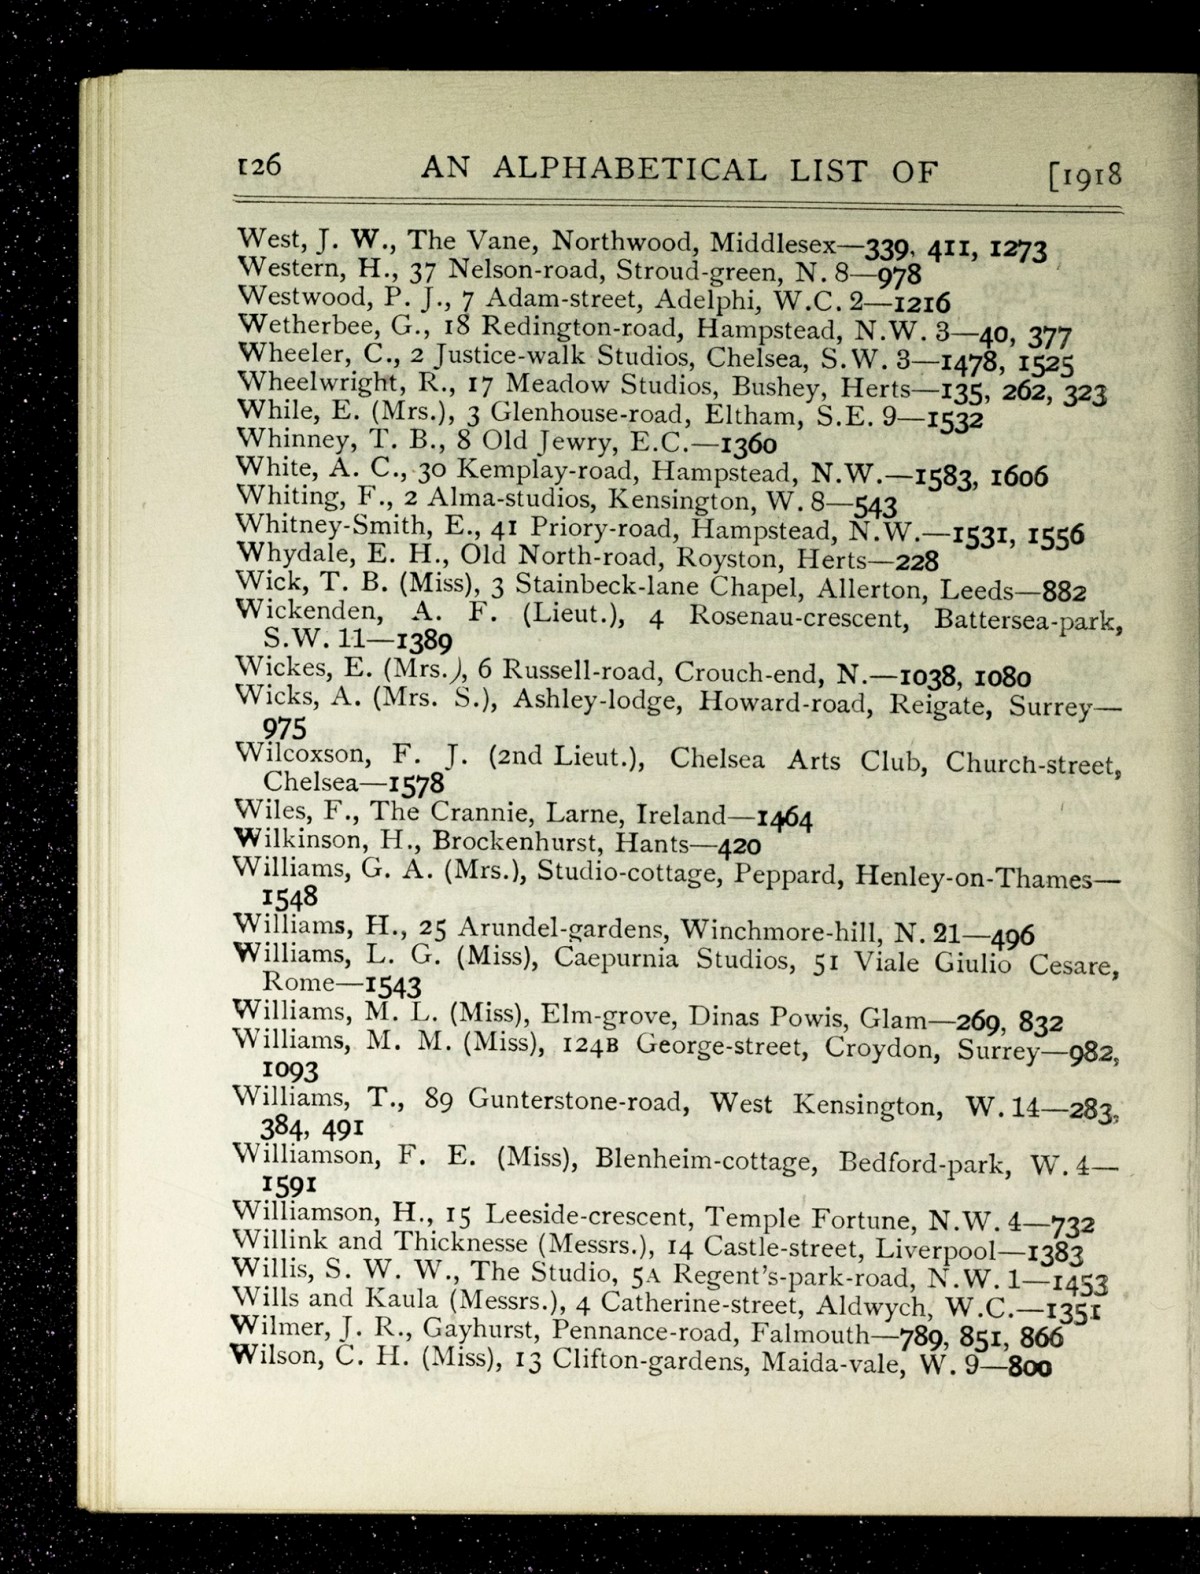 126 AN ALPHABETICAL LIST OF [1918
West, J. W., The Vane, Northwood, Middlesex—339, 411, 1273
Western, H., 37 Nelson-road, Stroud-green, N. 8—978
Westwood, P. J., 7 Adam-street, Adelphi, W.C. 2—1216
Wetherbee, G., 18 Redington-road, Hampstead, N.W. 3—40, 377
Wheeler, C., 2 Justice-walk Studios, Chelsea, S.W. 3—1478, 1525
Wheelwright, R., 17 Meadow Studios, Bushey, Herts—135, 262, 323
While, E. (Mrs.), 3 Glenhouse-road, Eltham, S.E. 9—1532
Whinney, T. B., 8 Old Jewry, E.C.—1360
White, A. C., 30 Kemplay-road, Hampstead, N.W.—1583, 1606
Whiting, F., 2 Alma-studios, Kensington, W. 8—543
Whitney-Smith, E., 41 Priory-road, Hampstead, N.W.—1531, 1556
Whydale, E. H., Old North-road, Royston, Herts—228
Wick, T. B. (Miss), 3 Stainbeck-lane Chapel, Allerton, Leeds—882
Wickenden, A. F. (Lieut.), 4 Rosenau-crescent, Battersea-park,
S.W. 11—1389
Wickes, E. (Mrs.), 6 Russell-road, Crouch-end, N.—1038, 1080
Wicks, A. (Mrs. S.), Ashley-lodge, Howard-road, Reigate, Surrey—
975
Wilcoxson, F. J. (2nd Lieut.), Chelsea Arts Club, Church-street,
Chelsea—1578
Wiles, F., The Crannie, Larne, Ireland—1464
Wilkinson, H., Brockenhurst, Hants—420
Williams, G. A. (Mrs.), Studio-cottage, Peppard, Henley-on-Thames—
1548
Williams, H., 25 Arundel-gardens, Winchmore-hill, N. 21—496
Williams, L. G. (Miss), Caepurnia Studios, 51 Viale Giulio Cesare,
Rome—1543
Williams, M. L. (Miss), Elm-grove, Dinas Powis, Glam—269, 832
Williams, M. M. (Miss), 124B George-street, Croydon, Surrey—982,
1093
Williams, T., 89 Gunterstone-road, West Kensington, W. 14—283,
384, 491
Williamson, F. E. (Miss), Blenheim-cottage, Bedford-park, W. 4—
1591
Williamson, H., 15 Leeside-crescent, Temple Fortune, N.W. 4—732
Willink and Thicknesse (Messrs.), 14 Castle-street, Liverpool—1383
Willis, S. W. W., The Studio, 5A Regent's-park-road, N.W. 1—1453
Wills and Kaula (Messrs.), 4 Catherine-street, Aldwych, W.C.—1351
Wilmer, J. R., Gayhurst, Pennance-road, Falmouth—789, 851, 866
Wilson, C. H. (Miss), 13 Clifton-gardens, Maida-vale, W. 9—800